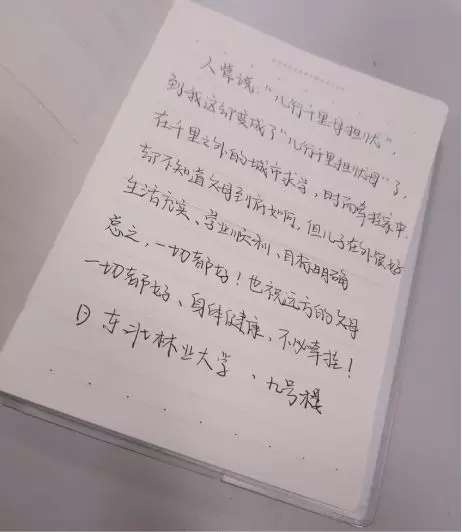 人常说:“儿行千里母担忧”,
到我这却变成了“儿行千里担忧母”了,
在千里之外的城市求学,时而牵挂家中,
却不知道父母到底如何,但儿子在外很好
生活充实、学业顺利、目标明确
总之,一切都好!也祝远方的父母
一切都好、身体健康,不必牵挂!
东北林业大学、九号楼